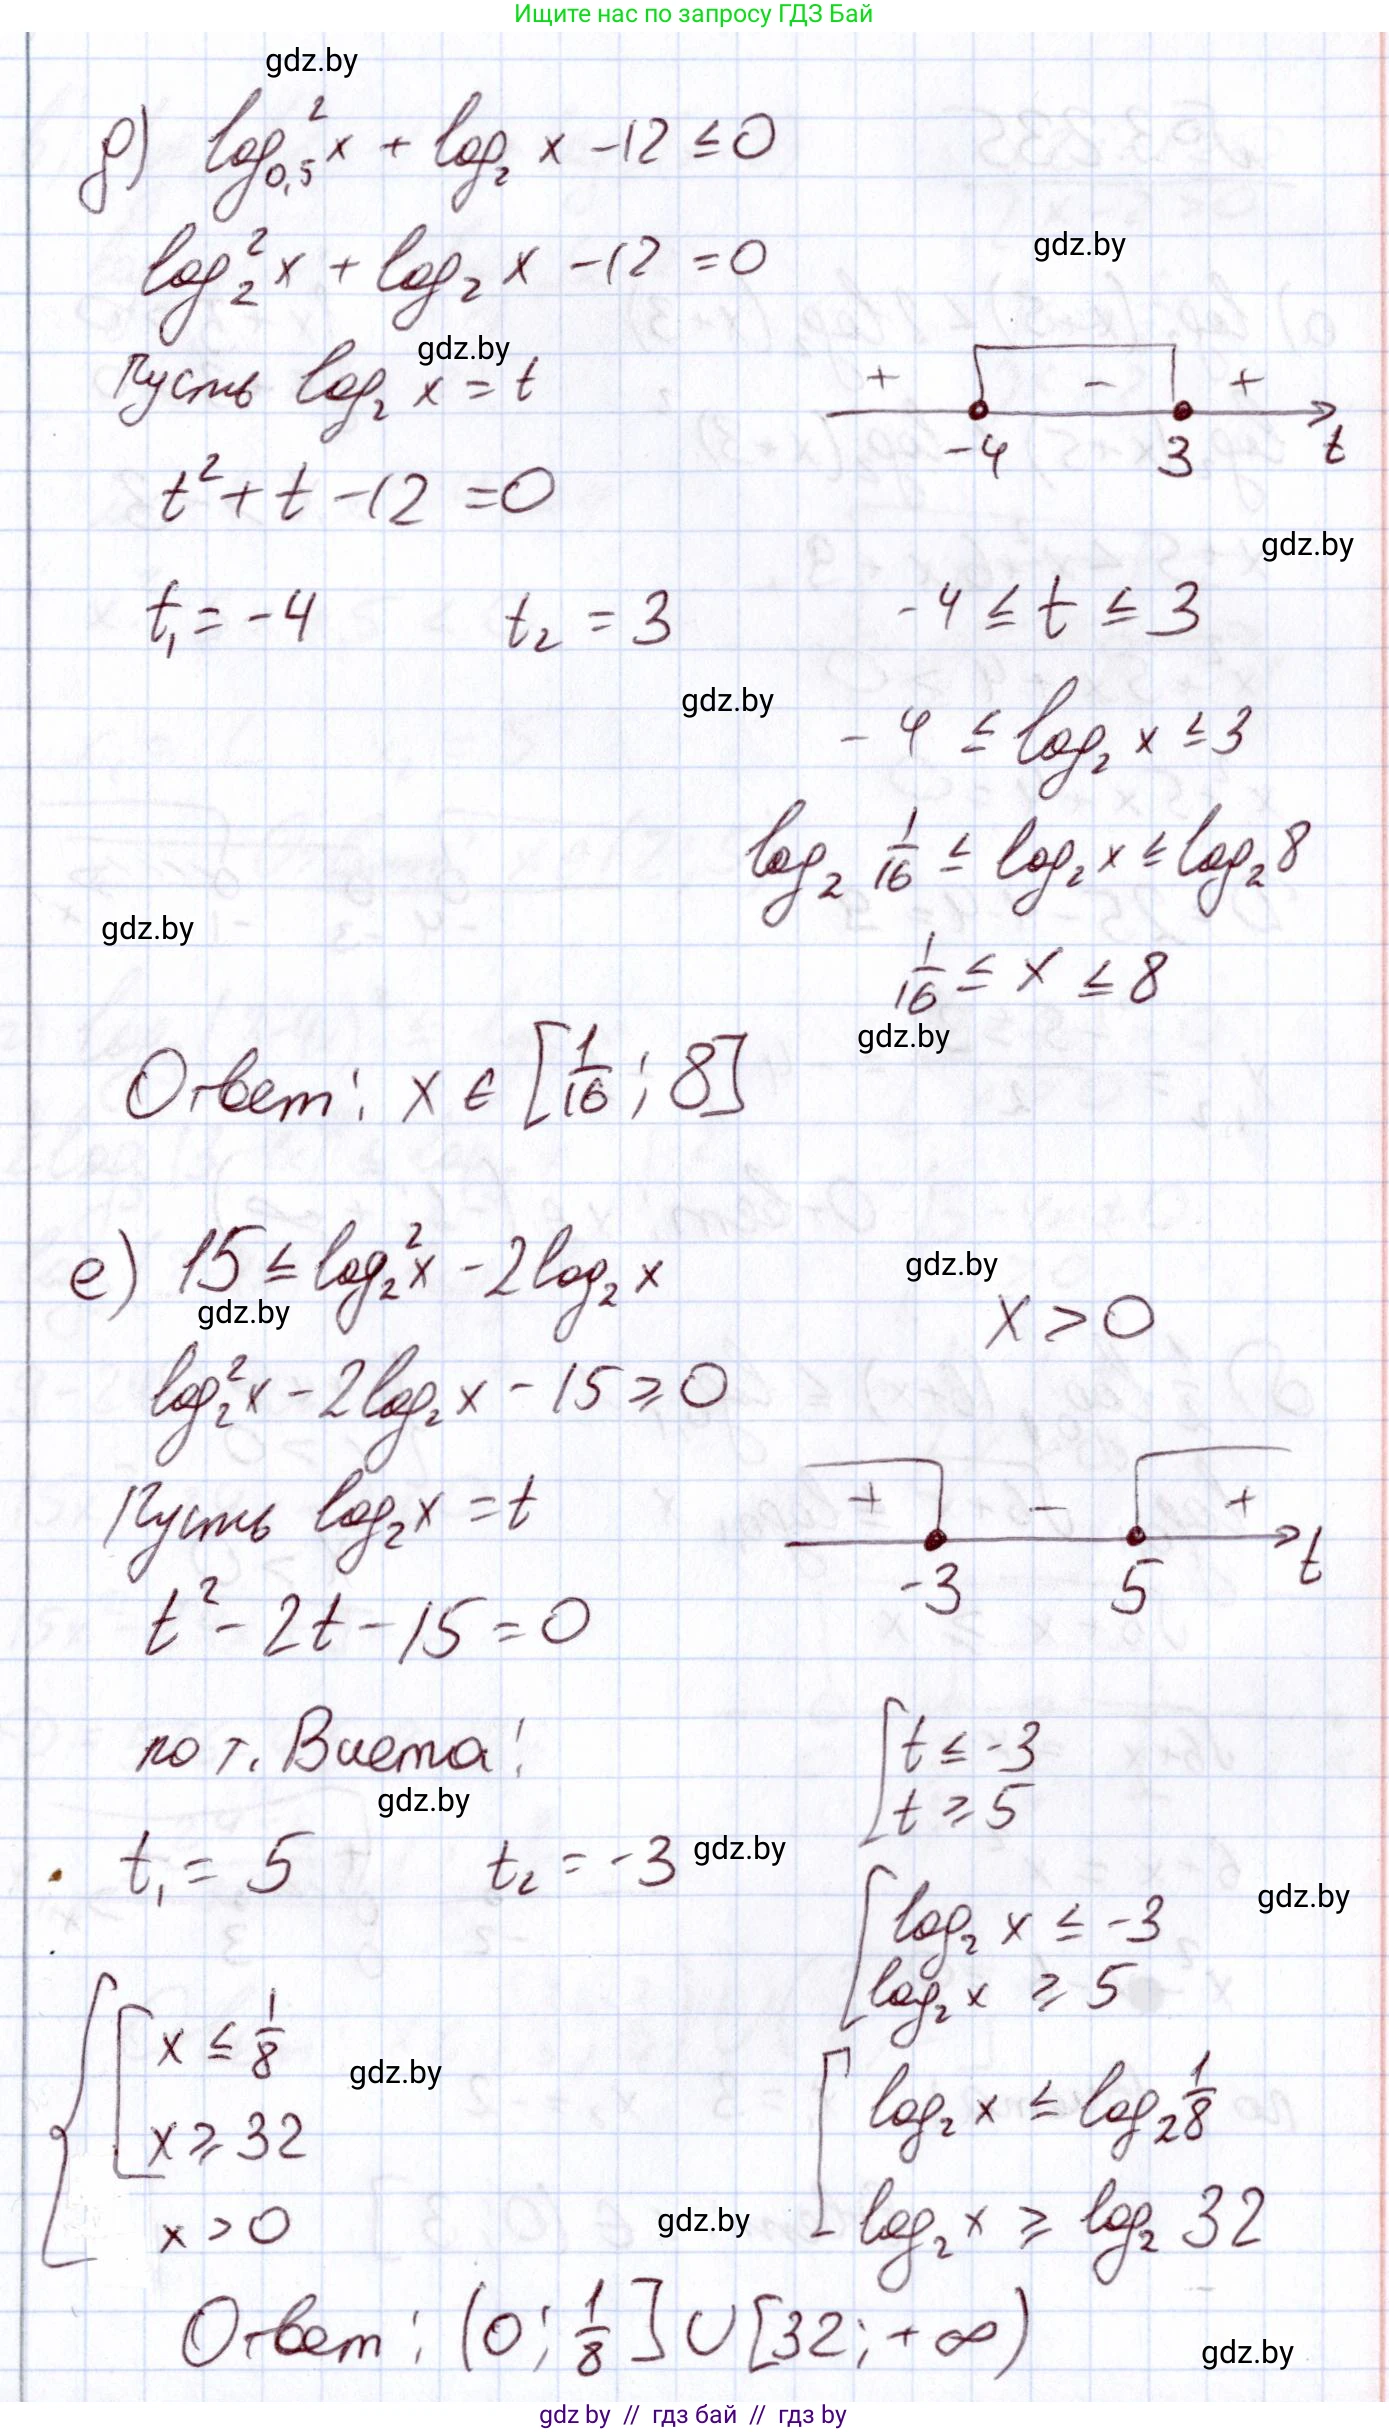 Ищите нас по запросу ГДЗ Бай
gdz.by
д) log²₀,₅ x + log₂ x - 12 ≤ 0
log₂² x + log₂ x - 12 = 0
gdz.by
Пусть log₂ x = t
gdz.by
+ - +
-4 3 t
t² + t - 12 = 0
gdz.by
t₁ = -4 t₂ = 3
-4 ≤ t ≤ 3
gdz.by
-4 ≤ log₂ x ≤ 3
log₂ 1/16 ≤ log₂ x ≤ log₂ 8
gdz.by
1/16 ≤ x ≤ 8
gdz.by
Ответ: x ∈ [1/16; 8]
е) 15 ≤ log₂² x - 2log₂ x
gdz.by
gdz.by
x > 0
log₂² x - 2log₂ x - 15 ≥ 0
Пусть log₂ x = t
+ - +
-3 5 t
t² - 2t - 15 = 0
по т. Виета:
gdz.by
[ t ≤ -3
t ≥ 5
t₁ = 5 t₂ = -3
gdz.by
gdz.by
[ log₂ x ≤ -3
log₂ x ≥ 5
{ [ x ≤ 1/8
x ≥ 32
x > 0
gdz.by
[ log₂ x ≤ log₂ 1/8
log₂ x ≥ log₂ 32
gdz.by
Ответ: (0; 1/8] ∪ [32; +∞)
gdz.by
gdz by // гдз бай // гдз by